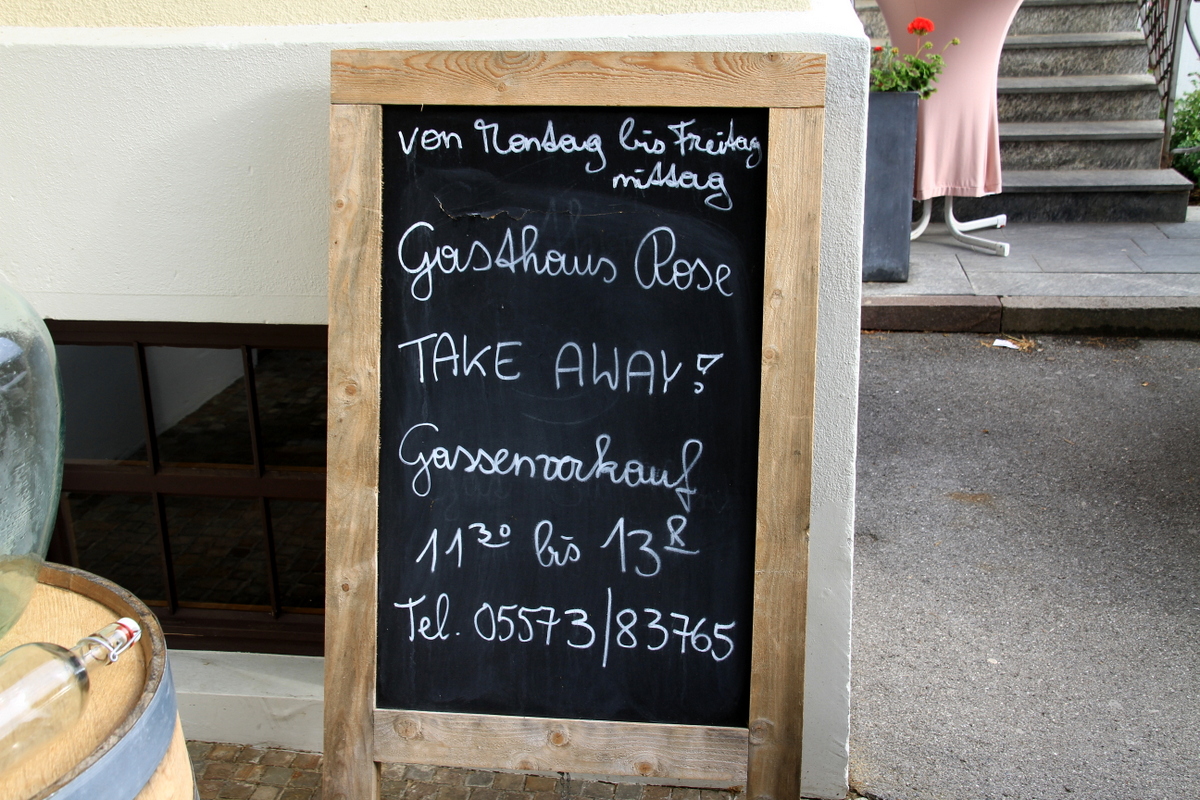 von Montag bis Freitag
mittag
Gasthaus Rose
TAKE AWAY!
Gassenvorkauf
11³⁰ bis 13
Tel. 05573/83765